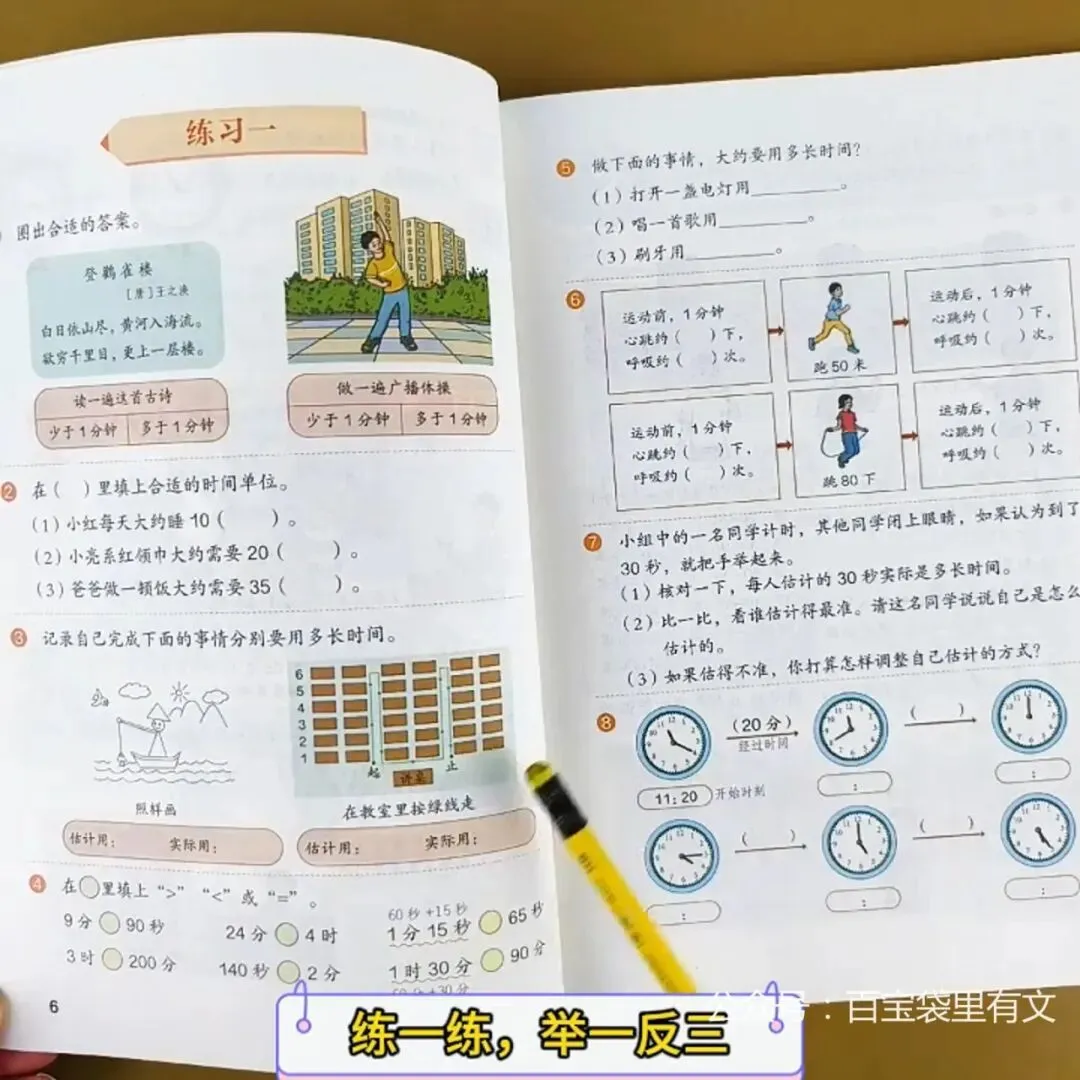 练习一
圈出合适的答案。
登鹳雀楼
[唐]王之涣
白日依山尽，黄河入海流。
欲穷千里目，更上一层楼。
读一遍这首古诗
少于1分钟 多于1分钟
做一遍广播体操
少于1分钟 多于1分钟
2 在( )里填上合适的时间单位。
(1)小红每天大约睡10( )。
(2)小亮系红领巾大约需要20( )。
(3)爸爸做一顿饭大约需要35( )。
3 记录自己完成下面的事情分别要用多长时间。
6
5
4
3
2
1
起 讲桌 止
照样画
在教室里按绿线走
估计用： 实际用：
估计用： 实际用：
4 在○里填上“>”“<”或“=”。
9分○90秒 24分○4时
60秒+15秒
1分15秒○65秒
3时○200分 140秒○2分 1时30分○90分
6
5 做下面的事情，大约要用多长时间？
(1)打开一盏电灯用________。
(2)唱一首歌用________。
(3)刷牙用________。
6 运动前，1分钟
心跳约( )下，
呼吸约( )次。
跑50米
运动后，1分钟
心跳约( )下，
呼吸约( )次。
运动前，1分钟
心跳约( )下，
呼吸约( )次。
跳80下
运动后，1分钟
心跳约( )下，
呼吸约( )次。
7 小组中的一名同学计时，其他同学闭上眼睛，如果认为到了
30秒，就把手举起来。
(1)核对一下，每人估计的30秒实际是多长时间。
(2)比一比，看谁估计得最准。请这名同学说说自己是怎么
估计的。
(3)如果估得不准，你打算怎样调整自己估计的方式？
8 (20分) ( )
经过时间
11:20 开始时刻 : :
( ) ( )
: : :
练一练，举一反三
公众号：百宝袋里有文